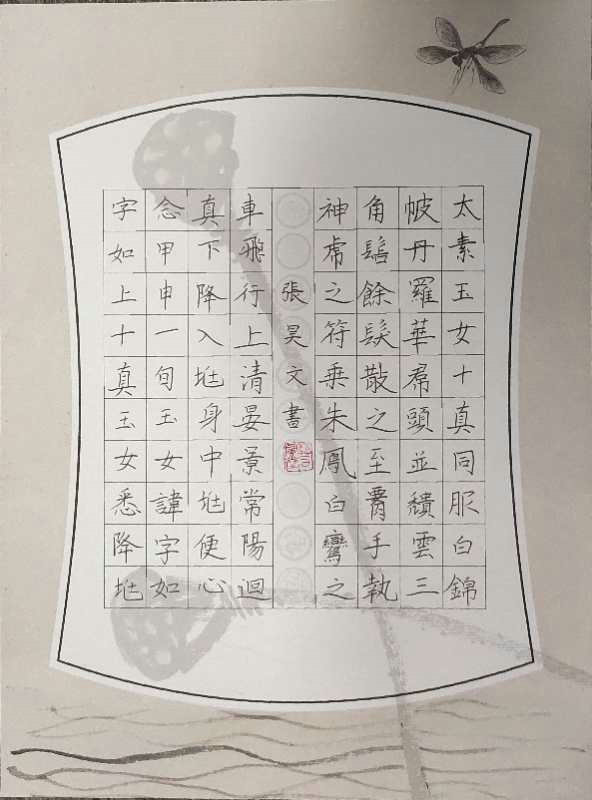 太素玉女十真同服白錦
帔丹羅華帬頭並穨雲三
角髻餘髮散之至手執
神虎之符乘朱鳳白鸞之
張昊文書
車飛行上清晏景常陽迴
真下降入身中便心
念甲申一旬玉女諱字如
字如上十真玉女悉降